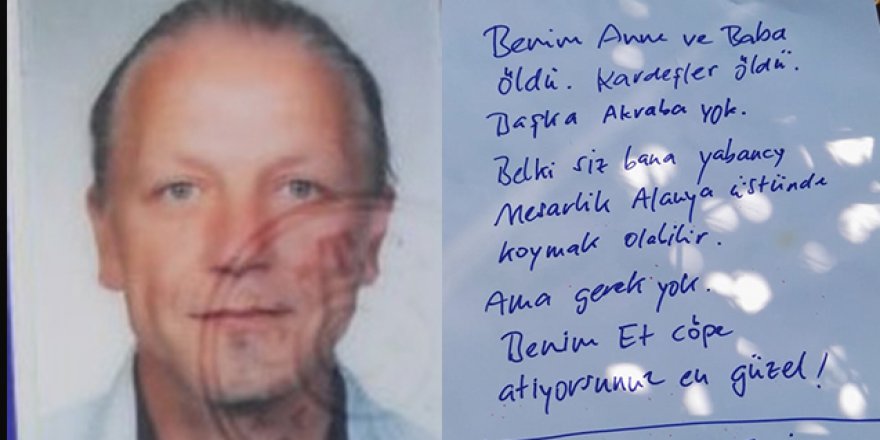 Benim Anne ve Baba
öldü. Kardeşler öldü.
Başka Akraba yok.
Belki siz bana yabancy
Mesarlik Alanya üstünde
koymak olabilir.
Ama gerek yok.
Benim Et cöpe
atiyorsunuz en güzel!